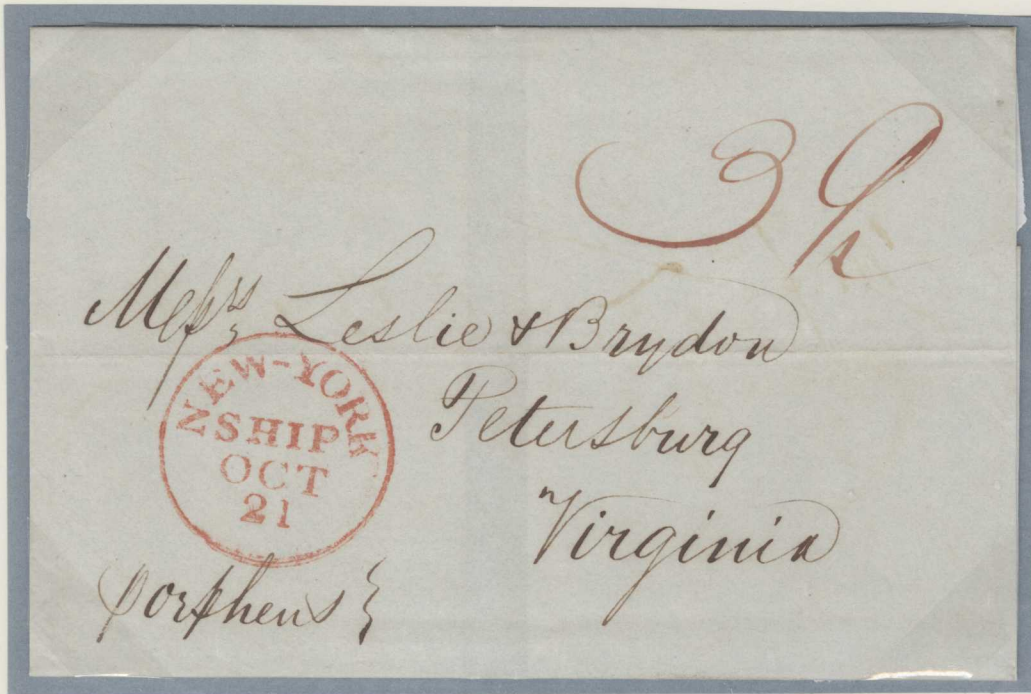 39½
Mess.rs Leslie & Brydon
Petersburg
Virginia
NEW-YORK
SHIP
OCT
21
p Orpheus